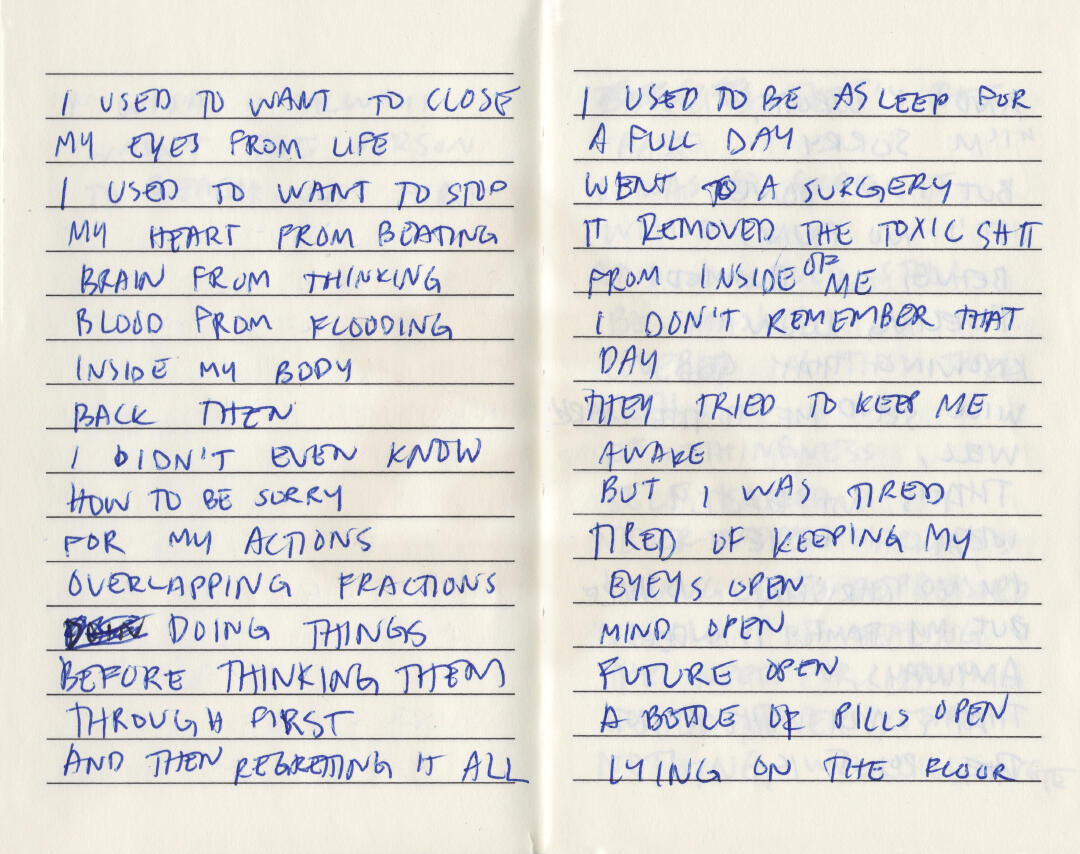 I USED TO WANT TO CLOSE
MY EYES FROM LIFE
I USED TO WANT TO STOP
MY HEART FROM BEATING
BRAIN FROM THINKING
BLOOD FROM FLOODING
INSIDE MY BODY
BACK THEN
I DIDN'T EVEN KNOW
HOW TO BE SORRY
FOR MY ACTIONS
OVERLAPPING FRACTIONS
DOING THINGS
BEFORE THINKING THEM
THROUGH FIRST
AND THEN REGRETTING IT ALL
I USED TO BE ASLEEP FOR
A FULL DAY
WENT TO A SURGERY
IT REMOVED THE TOXIC SHIT
FROM INSIDE OF ME
I DON'T REMEMBER THAT
DAY
THEY TRIED TO KEEP ME
AWAKE
BUT I WAS TIRED
TIRED OF KEEPING MY
EYEYS OPEN
MIND OPEN
FUTURE OPEN
A BOTTLE OF PILLS OPEN
LYING ON THE FLOOR